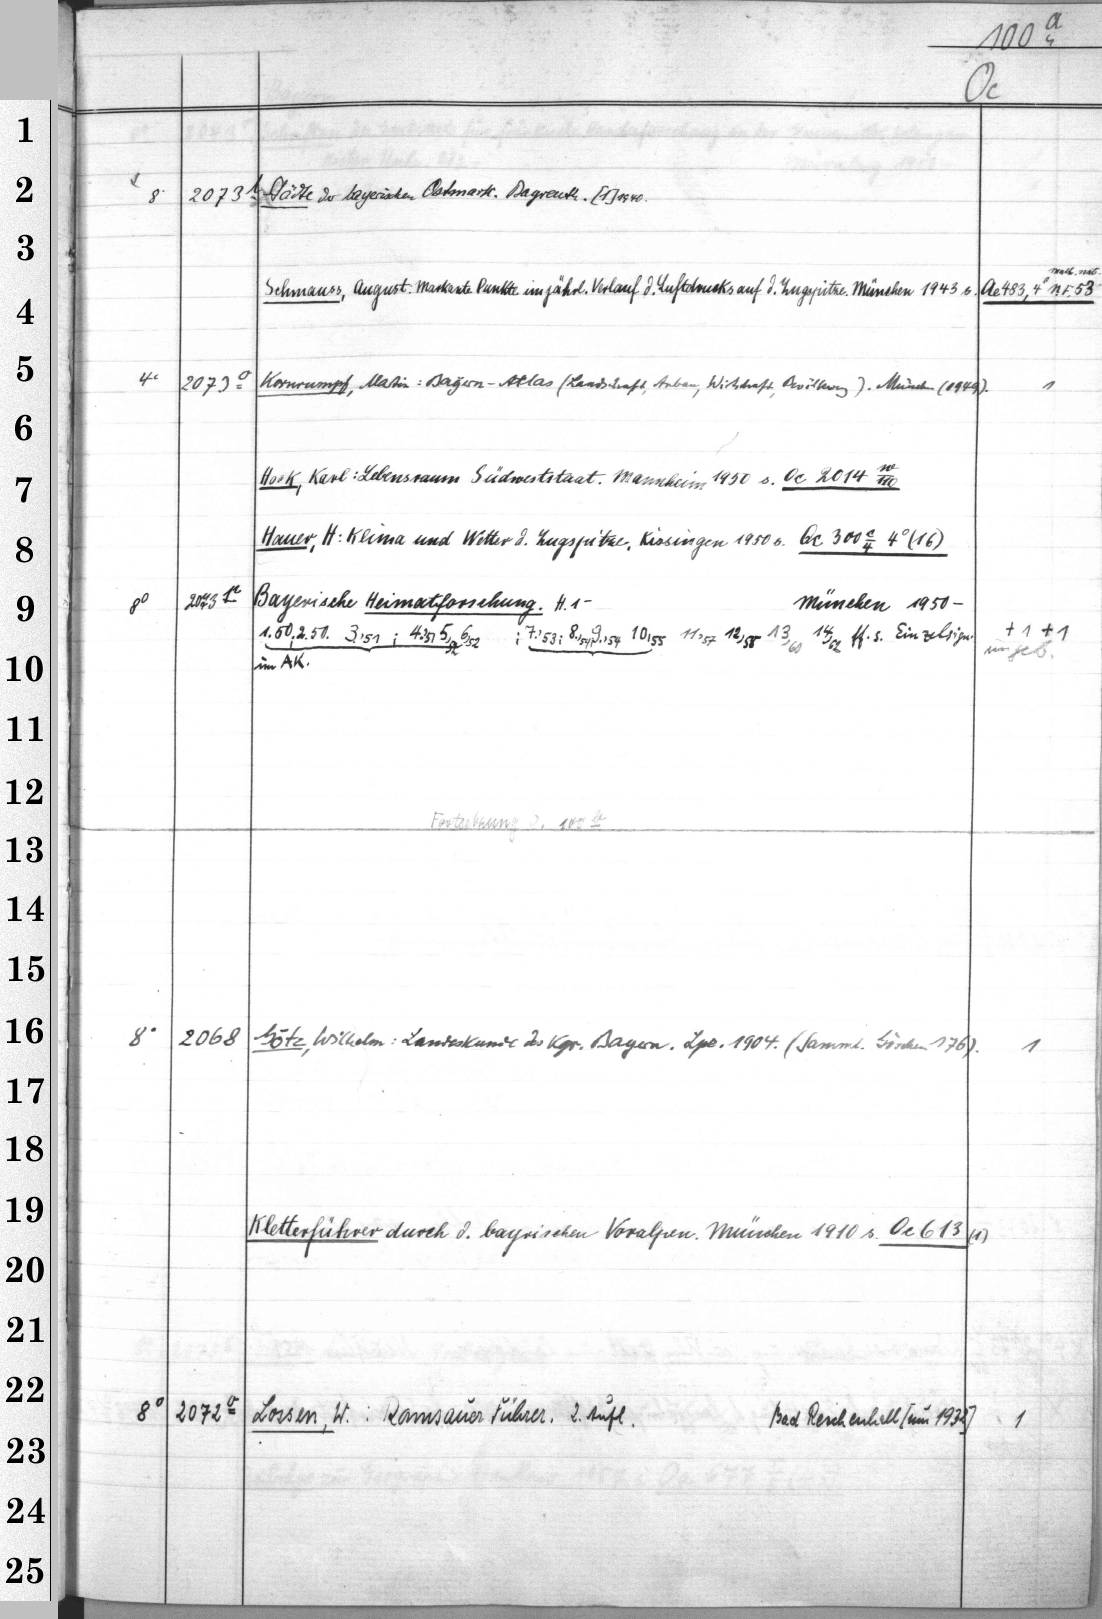 100 a/4
Oc
1
2
8° 2073 b Städte der bayerischen Ostmark. Bayreuth. [1] 1940.
3
math. nat.
Schmauss, August: Markante Punkte im jährl. Verlauf d. Luftdrucks auf d. Zugspitze. München 1943 s. Ac 483, 4° N.F. 53
4
5
4° 2073 a Kornrumpf, Martin: Bayern-Atlas (Landschaft, Anbau, Wirtschaft, Bevölkerung). München (1949). 1
6
7
Hook, Karl: Lebensraum Südweststaat. Mannheim 1950 s. Oc 2014
8
Hauer, H: Klima und Wetter d. Zugspitze, Kissingen 1950 s. Qc 300 c/4 4° (16)
9
8° 2073 Bayerische Heimatforschung. H. 1- München 1950-
1.50, 2.50. 3,51; 4,51, 5,52 6,52; 7,53; 8,54; 9,54 10,55 11,57 12,58 13,60 14,62 ff. s. Einzelsign. + 1 + 1
im AK. ungeb.
10
11
12
Fortsetzung S. 100 b
13
14
15
16
8° 2068 Götz, Wilhelm: Landeskunde des Kgr. Bayern. Lpz. 1904. (Samml. Göschen 176). 1
17
18
19
Kletterführer durch d. bayrischen Voralpen. München 1910 s. Oe 613 (1)
20
21
22
8° 2072 a Lossen, W.: Ramsauer Führer. 2. Aufl. Bad Reichenhall [um 1932] 1
23
24
25